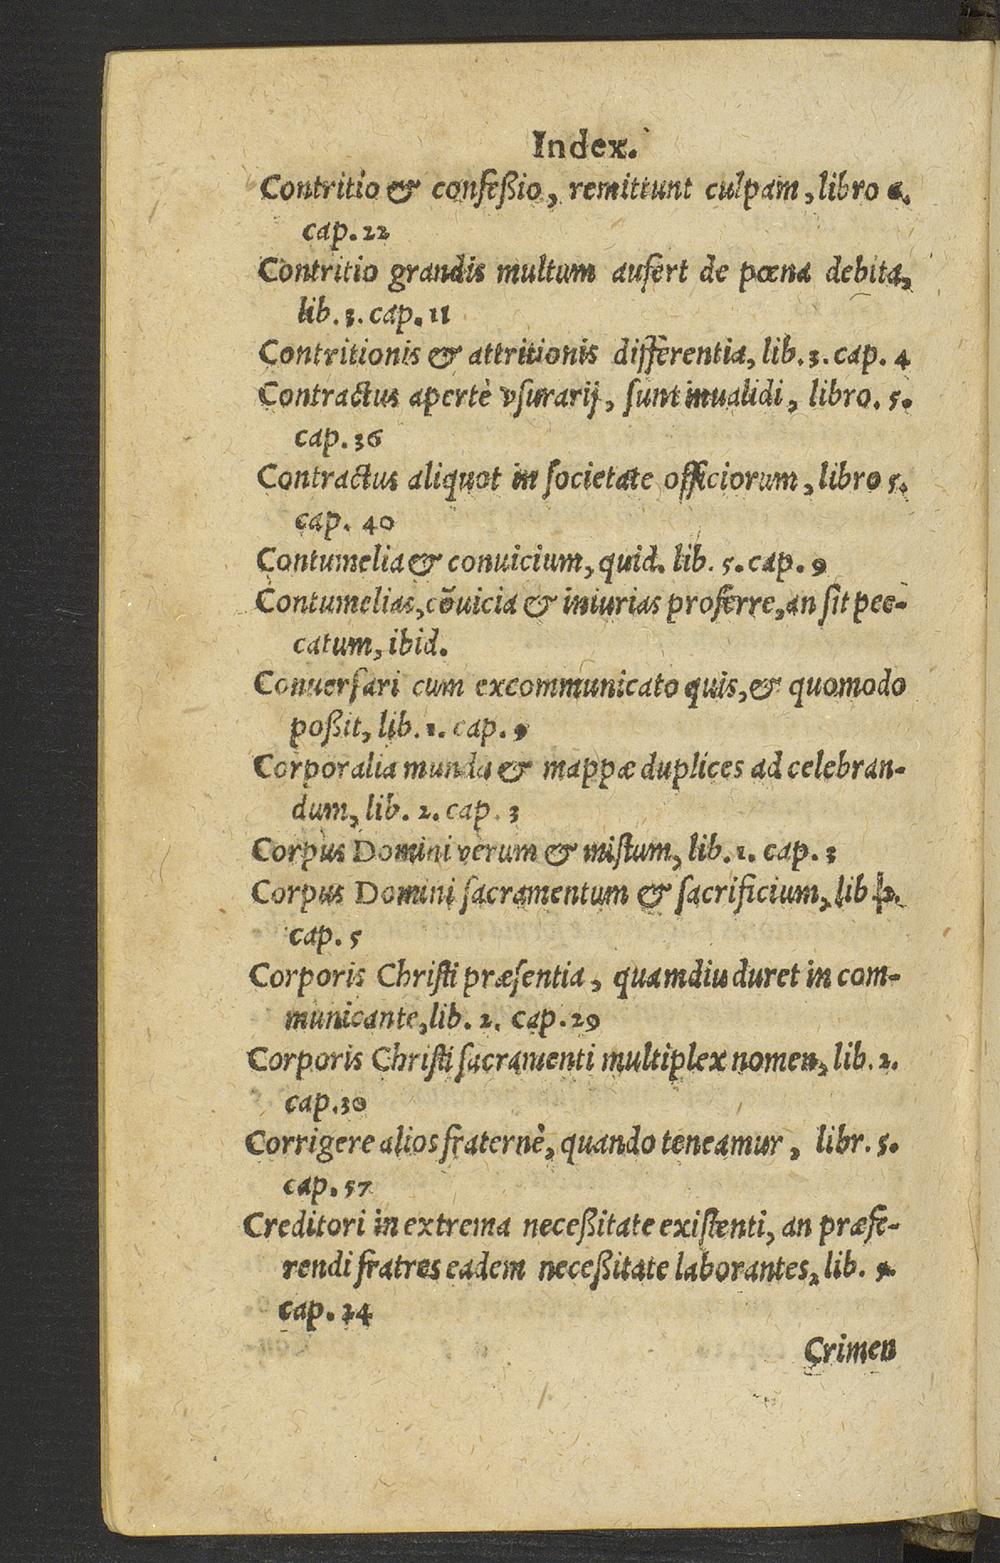 Index.
Contritio & confeßio, remittunt culpam, libro
cap. 22
Contritio grandis multum aufert de pœna debita,
lib. 3. cap. 11
Contritionis & attritionis differentia, lib. 3. cap. 4
Contractus apertè vſurarij, ſunt inualidi, libro. 5.
cap. 36
Contractus aliquot in ſocietate officiorum, libro 5.
cap. 40
Contumelia & conuicium, quid. lib. 5. cap. 9
Contumelias, cõuicia & iniurias proferre, an ſit pec-
catum, ibid.
Conuerſari cum excommunicato quis, & quomodo
poßit, lib. 1. cap. 9
Corporalia munda & mappæ duplices ad celebran-
dum, lib. 2. cap. 3
Corpus Domini verum & miſtum, lib. 1. cap. 3
Corpus Domini ſacramentum & ſacrificium, lib 2.
cap. 5
Corporis Chriſti præſentia, quamdiu duret in com-
municante, lib. 2. cap. 29
Corporis Chriſti ſacramenti multiplex nomen, lib. 2.
cap. 30
Corrigere alios fraternè, quando teneamur, libr. 5.
cap. 57
Creditori in extrema neceßitate exiſtenti, an præfe-
rendi fratres eadem neceßitate laborantes, lib.
cap. 24
Crimen